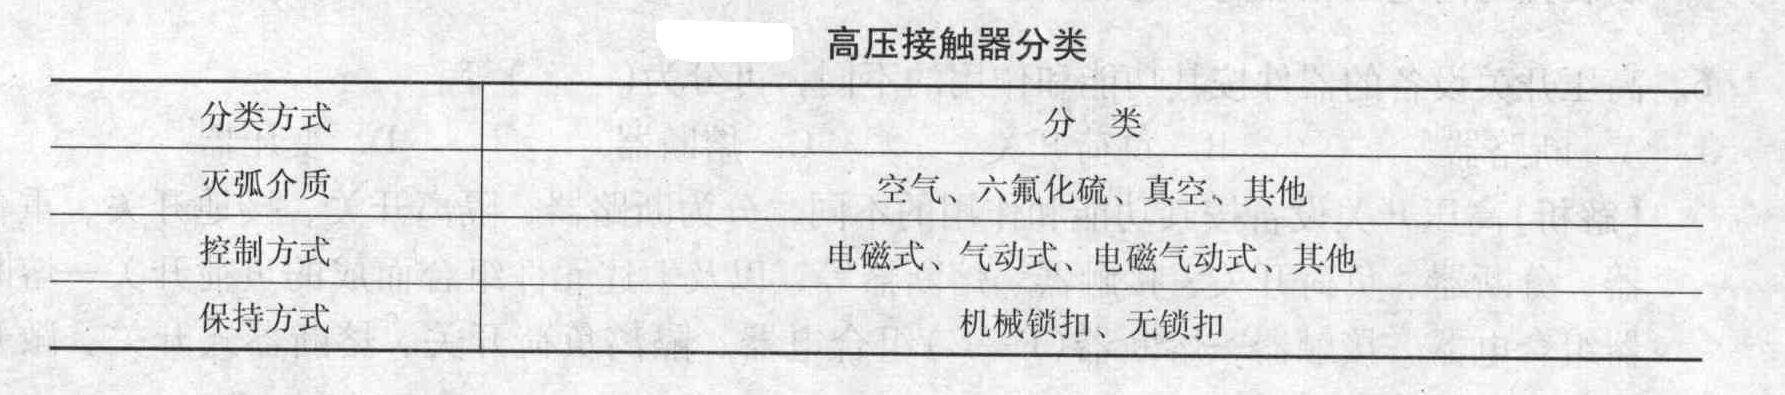 高压接触器分类
分类方式 分 类
灭弧介质 空气、六氟化硫、真空、其他
控制方式 电磁式、气动式、电磁气动式、其他
保持方式 机械锁扣、无锁扣